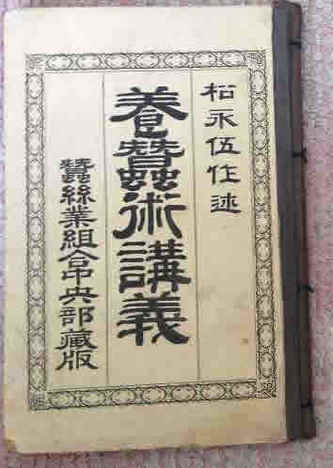 松永伍作述
養蠶術講義
蠶絲業組合中央部藏版